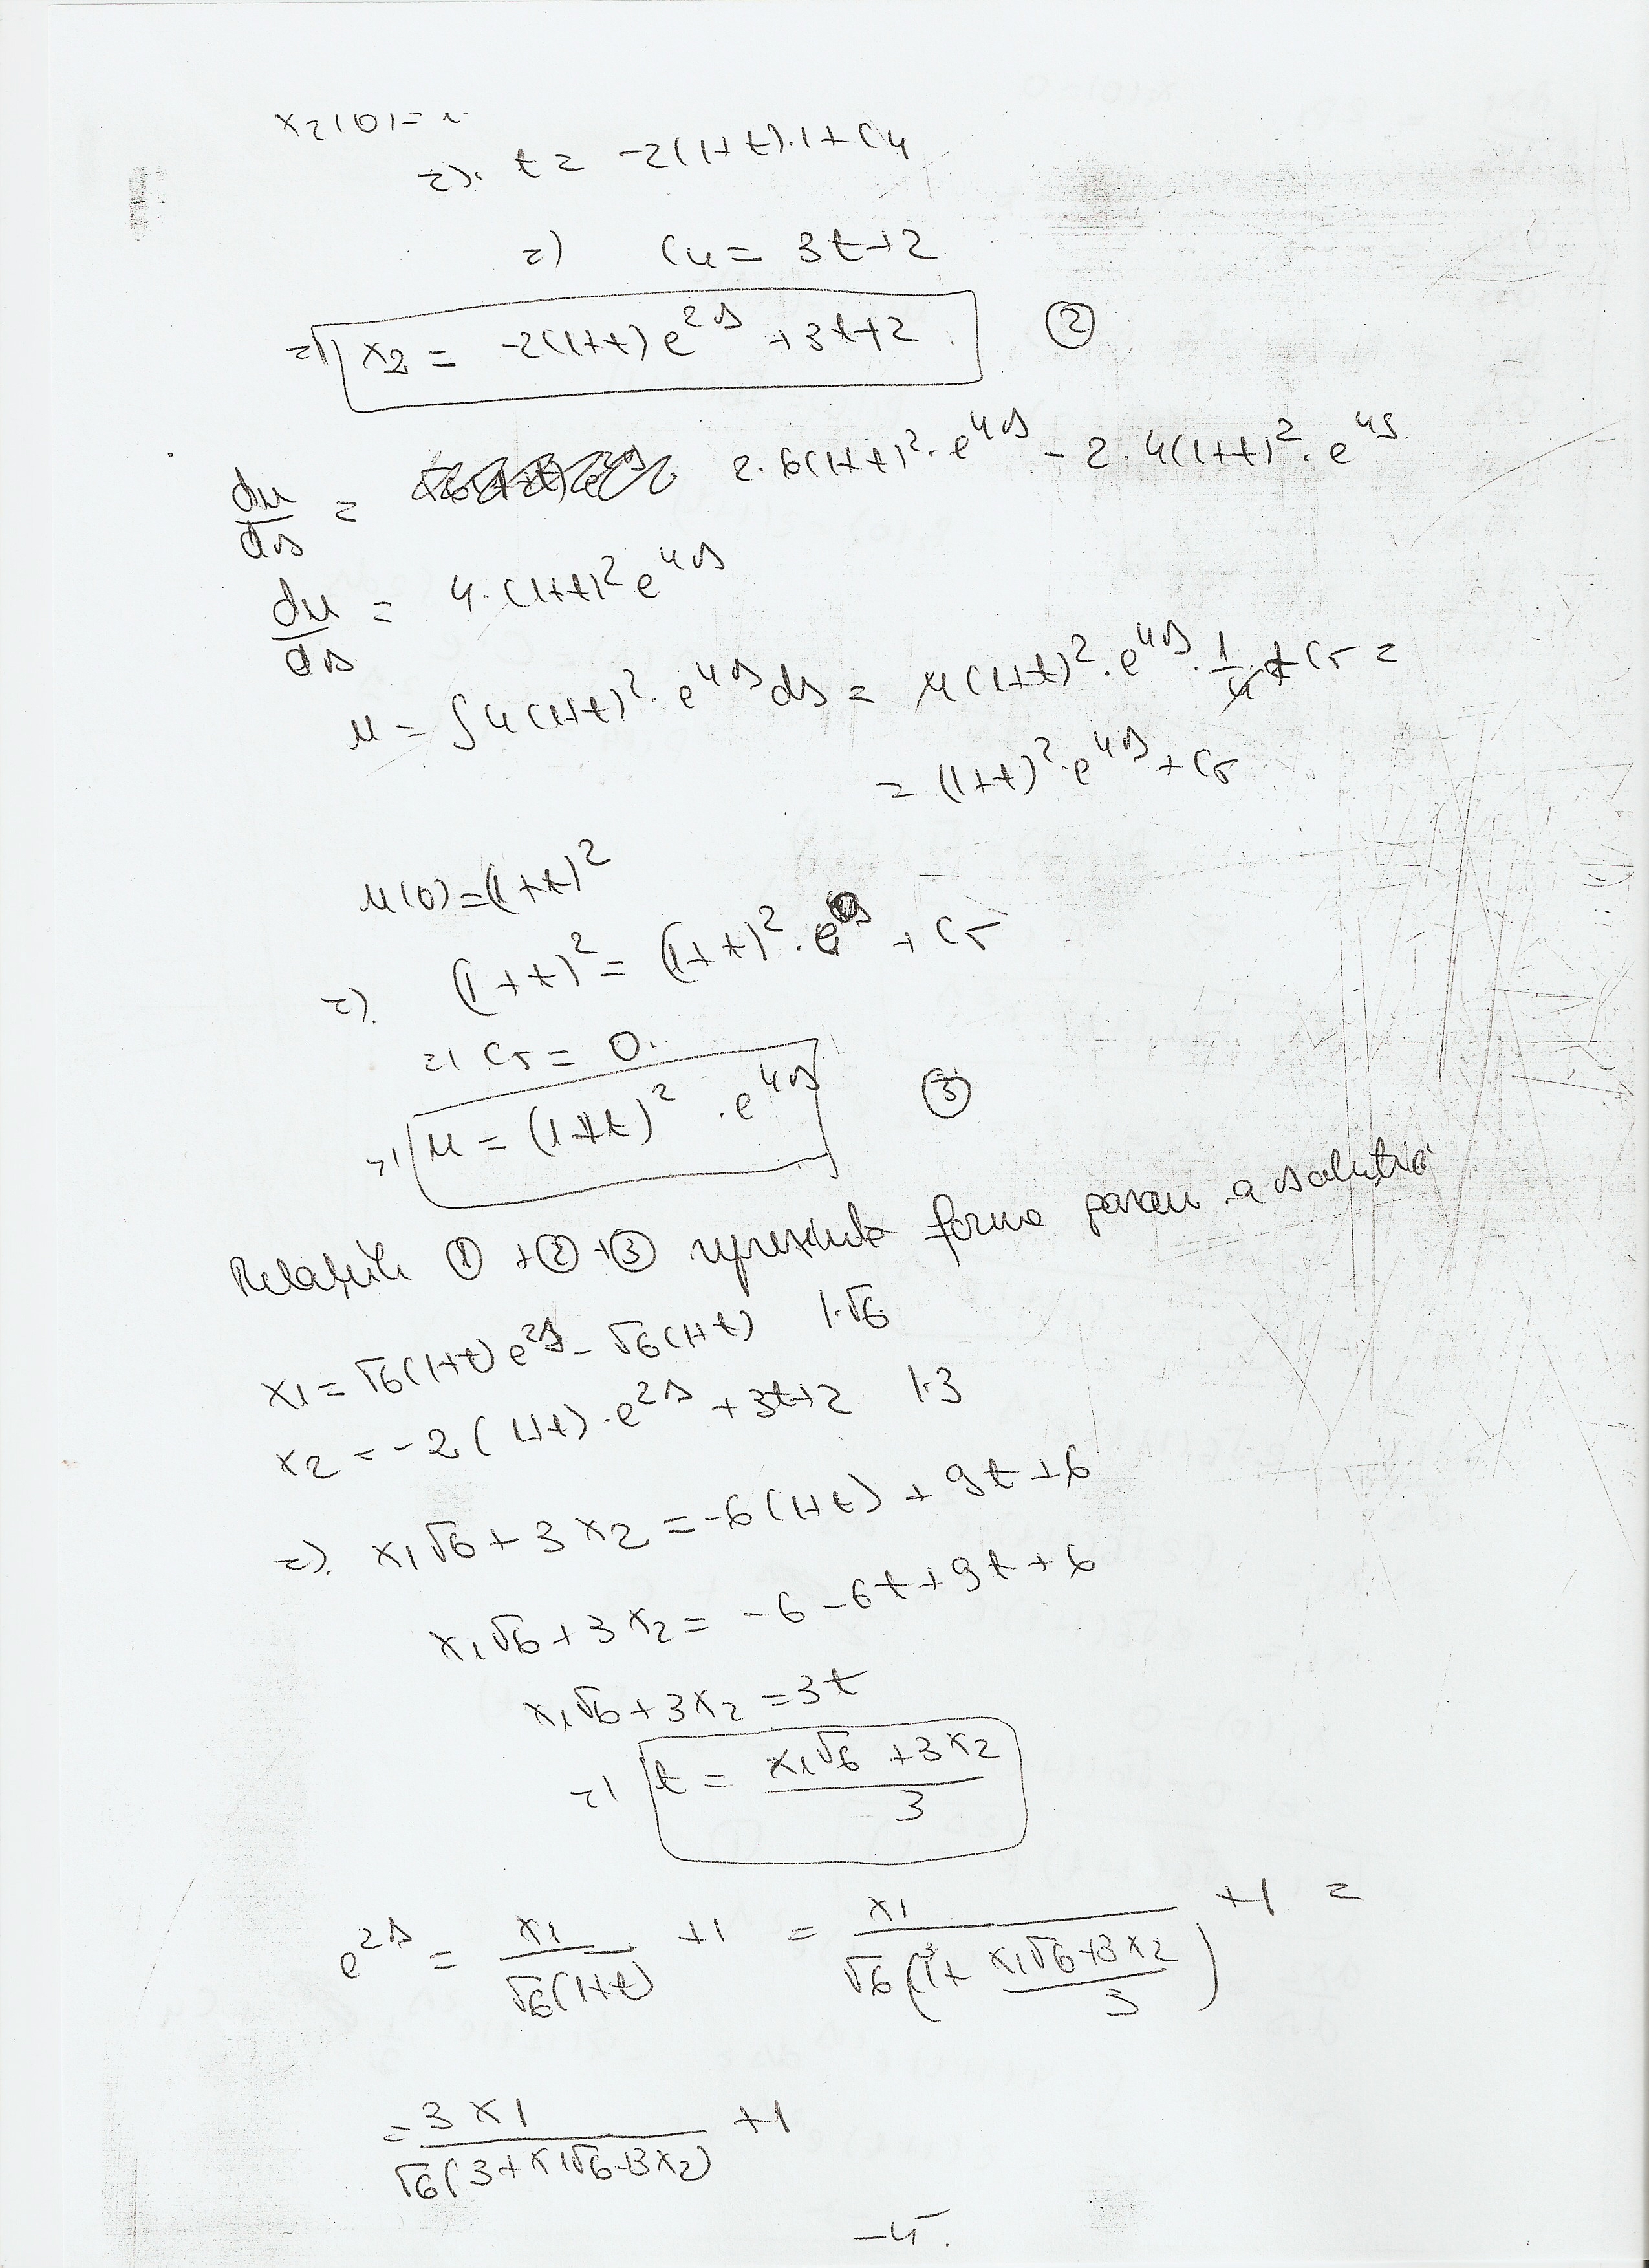 x₂(0)=
=> t = -2(1+t)·1 + C₄
=> C₄ = 3t+2
=> x₂ = -2(1+t)e^{2s} + 3t+2 ②
du/ds = 2·6(1+t)²·e^{4s} - 2·4(1+t)²·e^{4s}
du/ds = 4·(1+t)² e^{4s}
u = ∫4(1+t)²·e^{4s} ds = 4(1+t)²·e^{4s}·1/4 + C₅ =
= (1+t)²·e^{4s} + C₅
u(0) = (1+t)²
=> (1+t)² = (1+t)²·e + C₅
=> C₅ = 0.
=> u = (1+t)²·e^{4s} ③
Relațiile ① + ② + ③ reprezintă forma param a soluției
x₁ = √6(1+t)e^{2s} - √6(1+t) |·√6
x₂ = -2(1+t)·e^{2s} + 3t+2 |·3
=> x₁√6 + 3x₂ = -6(1+t) + 9t + 6
x₁√6 + 3x₂ = -6 - 6t + 9t + 6
x₁√6 + 3x₂ = 3t
=> t = (x₁√6 + 3x₂)/3
e^{2s} = x₁/(√6(1+t)) + 1 = x₁/(√6(1 + (x₁√6+3x₂)/3)) + 1 =
= 3x₁/(√6(3+x₁√6+3x₂)) + 1